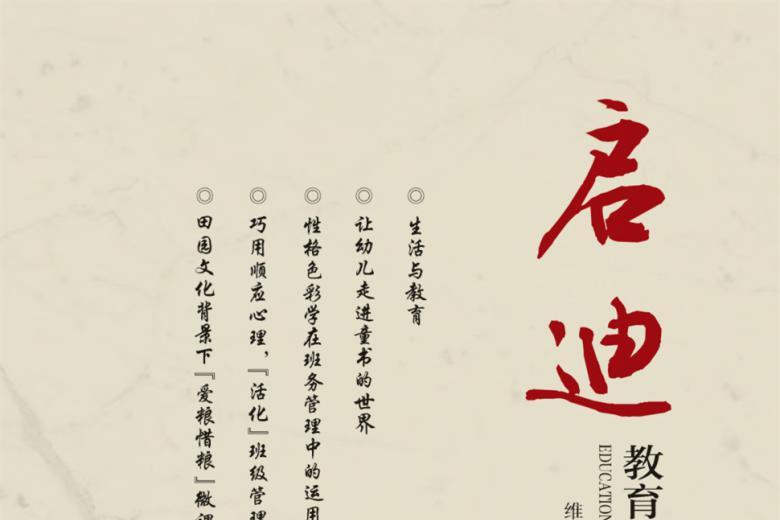 启迪
教育
EDUCATION
维
◎生活与教育
◎让幼儿走进童书的世界
◎性格色彩学在班务管理中的运用
◎巧用顺应心理，『活化』班级管理
◎田园文化背景下『爱粮惜粮』微课